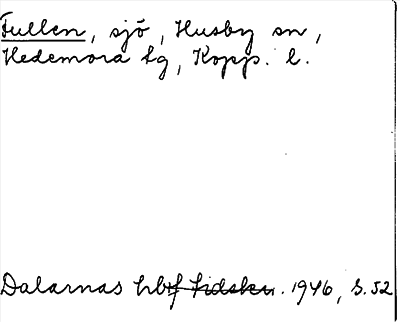 Fullen, sjö, Husby sn,
Hedemora tg, Kopp. l.
Dalarnas hbf tidskr. 1946, s. 52